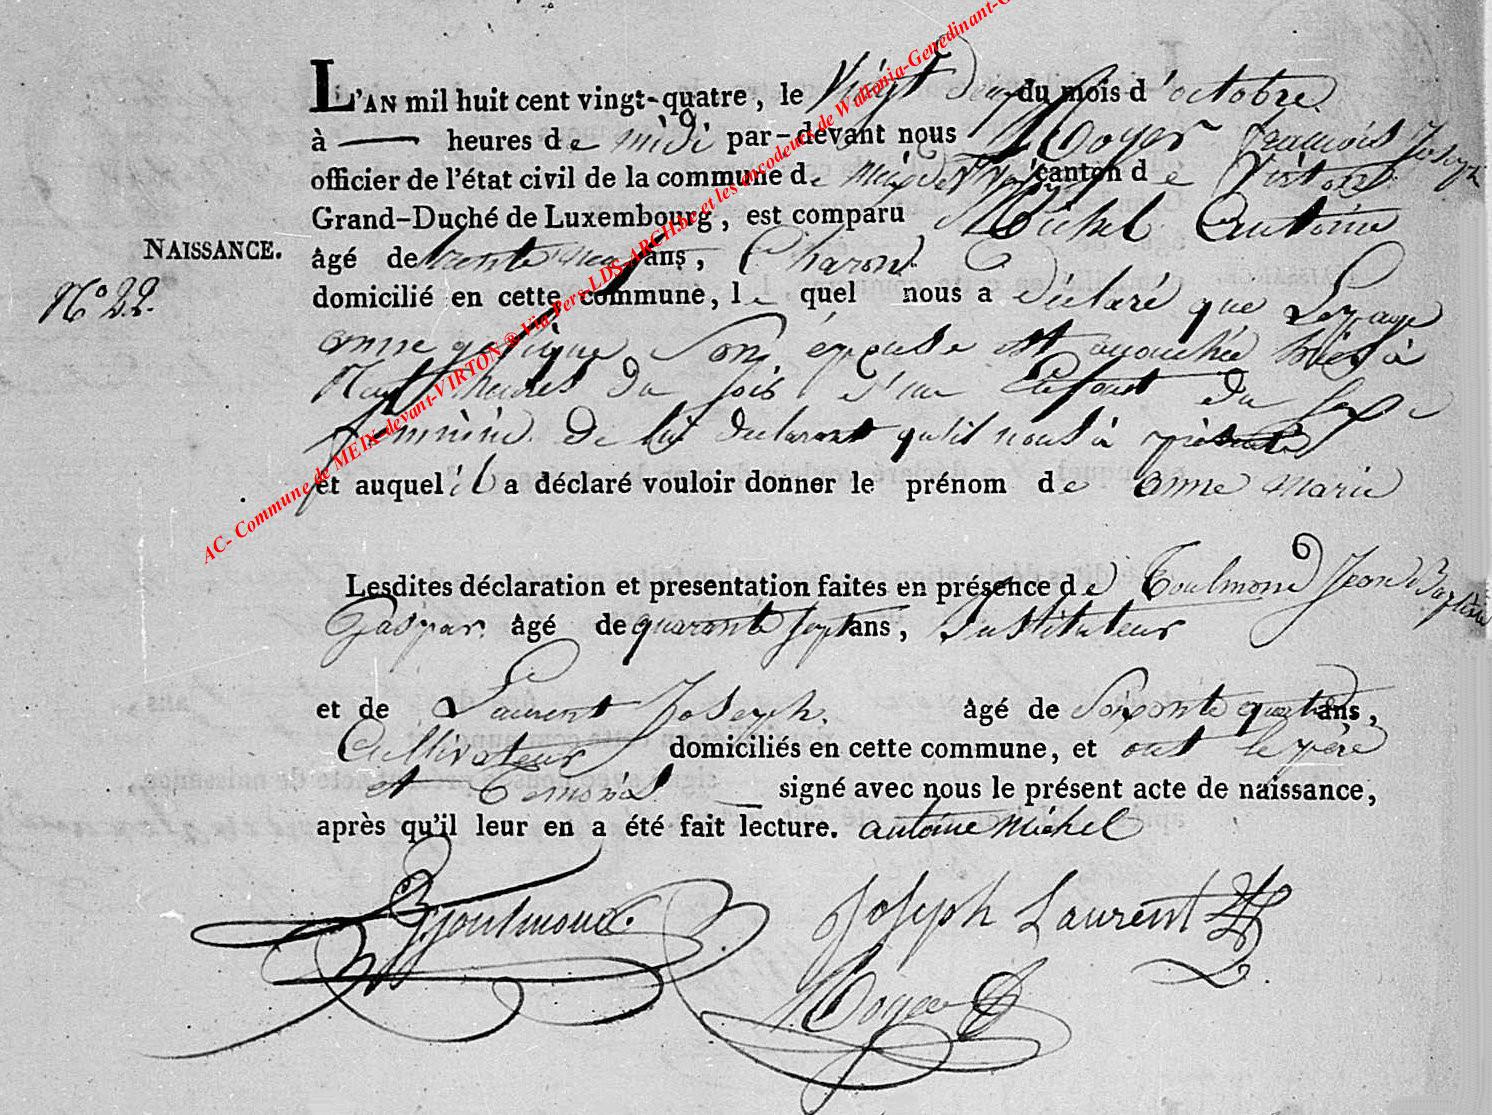 L'AN mil huit cent vingt-quatre, le Vingt deux du mois d'octobre
à — heures de midi par-devant nous Noyer francois Joseph
officier de l'état civil de la commune de meix devt Virton canton de Virton
Grand-Duché de Luxembourg, est comparu Michel Antoine
NAISSANCE. âgé de trente neuf ans, Charon
N° 22. domicilié en cette commune, le quel nous a déclaré que Lepage
anne son épouse est accouchée hier à
heures du soir d'un Enfant du sexe
féminin de lui declarant qu'il nous à présenté
et auquel il a déclaré vouloir donner le prénom de anne marie
Lesdites déclaration et presentation faites en présence de Toulmond Jean Baptiste
Gaspar âgé de quarante sept ans, Instituteur
et de Laurent Joseph. âgé de Soixante quatre ans,
Cultivateur domiciliés en cette commune, et ont le père
et temoins signé avec nous le présent acte de naissance,
après qu'il leur en a été fait lecture. antoine Michel
Joseph Laurent
AC- Commune de MEIX-devant-VIRTON ® Via Pers-LDS-ARCH.be et les encodeurs de Wallonia-Genedinant-